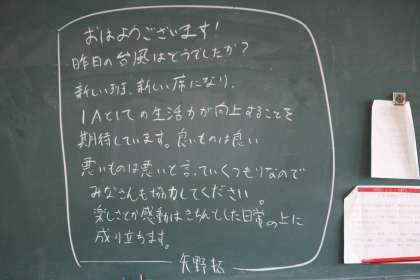 おはようございます!
昨日の台風はどうでしたか?
新しい班、新しい席になり、
1Aとしての生活力が向上することを
期待しています。良いものは良い
悪いものは悪いと言っていくつもりなので
みなさんも協力してください。
楽しさとか感動はきちんとした日常の上に
成り立ちます。
矢野